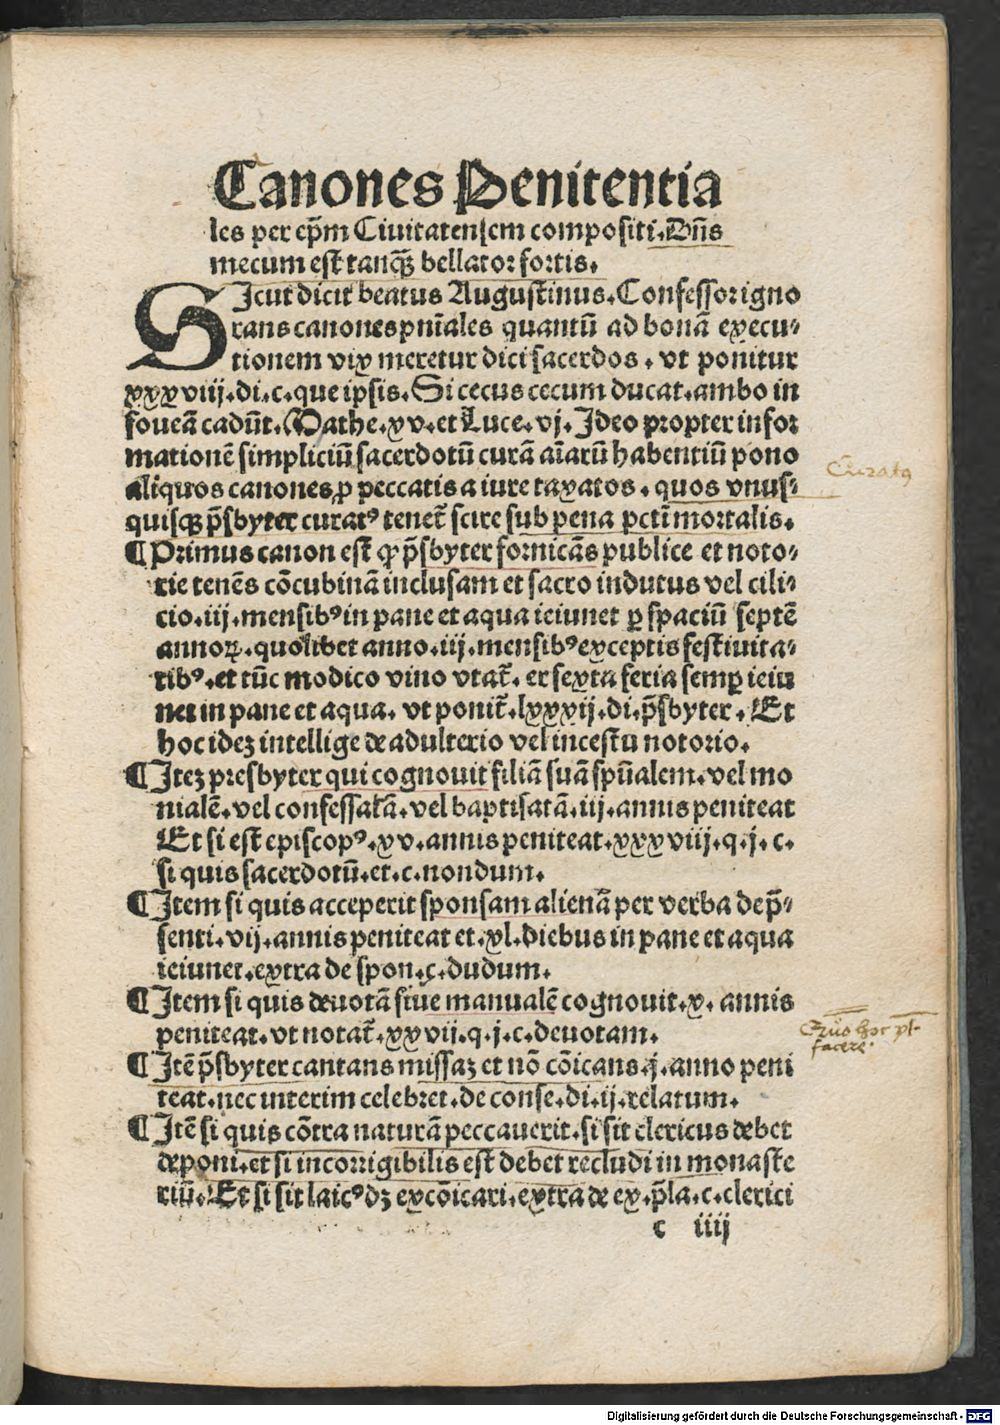 Canones Penitentia
les per ep̃m Ciuitatensem compositi. Dñs
mecum est tanq̃ bellator fortis.
SIcut dicit beatus Augustinus. Confessor igno
rans canones pñiales quantũ ad bonã execu⸗
tionem vix meretur dici sacerdos. vt ponitur
xxxviij. di. c. que ipsis. Si cecus cecum ducat. ambo in
foueã cadũt. Mathe. xv. et Luce. vj. Ideo propter infor
mationẽ simpliciũ sacerdotũ curã aĩarũ habentiũ pono
aliquos canones ꝓ peccatis a iure taxatos. quos vnus⸗
quisqꝫ p̃sbyter curatꝰ tenet̃ scire sub pena pcti mortalis.
¶ Primus canon est ꝙ p̃sbyter fornicãs publice et noto⸗
rie tenẽs cõcubinã inclusam et sacro indutus vel cili⸗
cio. iij. mensibꝰ in pane et aqua ieiunet ꝑ spaciũ septẽ
annoꝝ. quolibet anno. iij. mensibꝰ exceptis festiuita⸗
tibꝰ. et tũc modico vino vtat̃. et sexta feria semꝑ ieiu
net in pane et aqua. vt ponit̃. lxxxij. di. p̃sbyter. Et
hoc ideꝫ intellige de adulterio vel incestu notorio.
¶ Iteꝫ presbyter qui cognouit filiã suã spũalem. vel mo
nialẽ. vel confessatã. vel baptisatã. iij. annis peniteat
Et si est episcopꝰ. xv. annis peniteat. xxxviij. q. j. c.
si quis sacerdotũ. et. c. nondum.
¶ Item si quis acceperit sponsam alienã per verba de p̃⸗
senti. vij. annis peniteat et. xl. diebus in pane et aqua
ieiunet. extra de spon. c. dudum.
¶ Item si quis deuotã siue manualẽ cognouit. x. annis
peniteat. vt notat̃. xxvij. q. j. c. deuotam.
¶ Itẽ p̃sbyter cantans missaꝫ et nõ cõicans. j. anno peni
teat. nec interim celebret. de conse. di. ij. relatum.
¶ Itẽ si quis cõtra naturã peccauerit. si sit clericus debet
deponi. et si incorrigibilis est debet recludi in monaste
riũ. Et si sit laicꝰ dꝫ excõicari. extra de ex. p̃la. c. clerici
c iiij
Curatꝰ
facere.
Digitalisierung gefördert durch die Deutsche Forschungsgemeinschaft - DFG